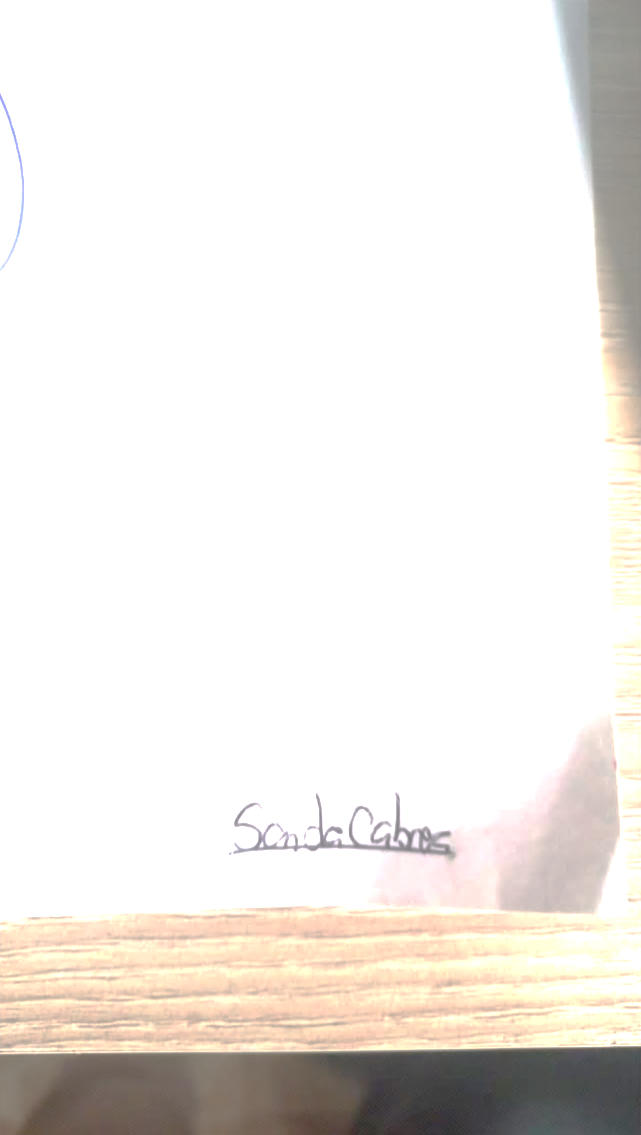 Sanda Cabres